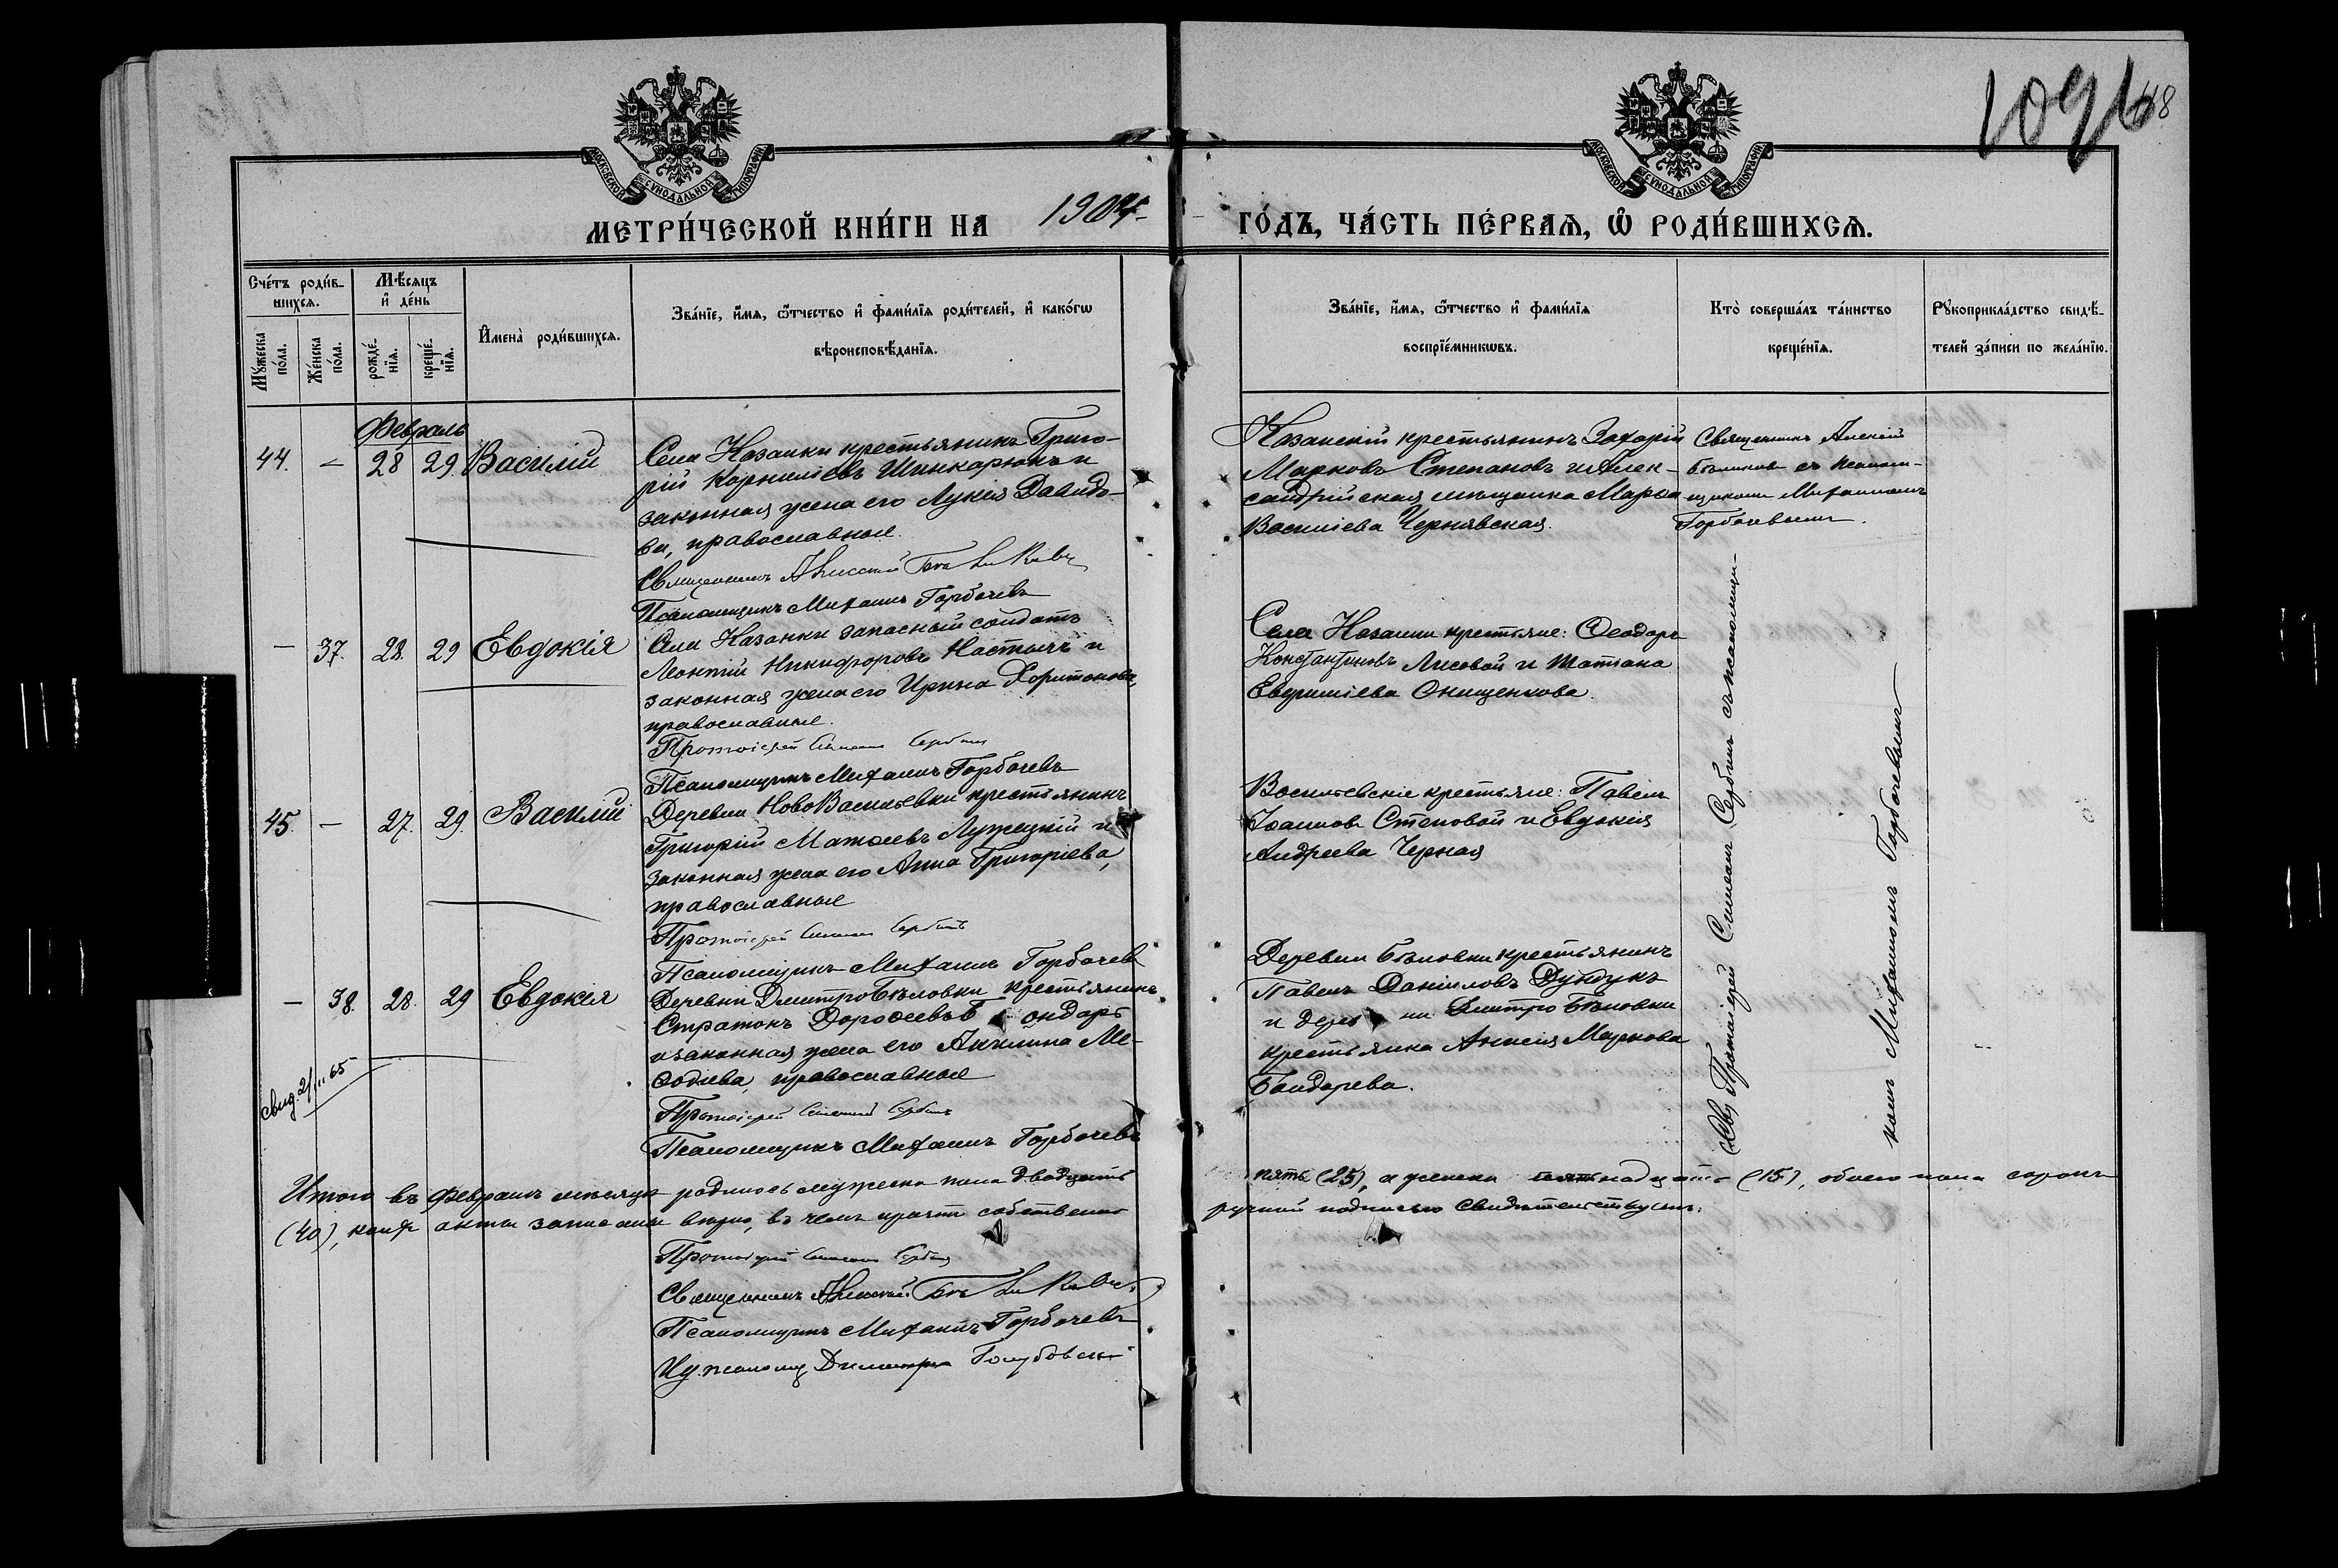 1096
418
МОСКОВСКОЙ СѴНОДАЛЬНОЙ ТИПОГРАФІИ
МОСКОВСКОЙ СѴНОДАЛЬНОЙ ТИПОГРАФІИ
МЕТРИ́ЧЕСКОЙ КНИ́ГИ НА 1904 ГО́ДЪ, ЧА́СТЬ ПЕ́РВАѦ, Ѡ҆ РОДИ́ВШИХСѦ.
Сче́тъ роди́в-
шихсѧ.
Мꙋ́жеска по́ла.
Же́нска по́ла.
Мѣ́сѧцъ
и҆ де́нь
рожде́-
нїѧ.
креще́-
нїѧ.
И҆мена̀ роди́вшихсѧ.
Зва́нїе, и҆́мѧ, ѻ҆́тчество и҆ фами́лїѧ роди́телей, и҆ како́гѡ
вѣроисповѣ́данїѧ.
Зва́нїе, и҆́мѧ, ѻ҆́тчество и҆ фами́лїѧ
воспрїе́мникѡвъ.
Кто̀ соверша́лъ та́инство
креще́нїѧ.
Рꙋкоприкла́дство свидѣ́-
телей за́писи по жела́нїю.
Февраль
44. – 28 29. Василій
Села Казанки крестьянинъ Григо-
рій Корниліевъ Шинкарюкъ и
законная жена его Лукія Давидо-
ва, православные.
Священникъ Алексій Бѣликовъ
Псаломщикъ Михаилъ Горбачевъ
Казанскій крестьянинъ Захарій
Марковъ Степановъ и Алек-
сандрійская мѣщанка Марѳа
Василіева Чернявская.
Священникъ Алексій
Бѣликовъ съ псалом-
щикомъ Михаиломъ
Горбачевымъ.
– 37. 28. 29 Евдокія
Села Казанки запасный солдатъ
Леонтій Никифоровъ Настычъ и
законная жена его Ирина Харитонова,
православные.
Протоіерей Симеонъ Сербинъ
Псаломщикъ Михаилъ Горбачевъ
Села Казанки крестьяне: Ѳеодоръ
Константиновъ Лисовой и Татіана
Евфиміева Онищенкова.
45. – 27. 29. Василій
Деревни НовоВасильевки крестьянинъ
Григорій Матѳеевъ Лужецкій и
законная жена его Анна Григоріева,
православные
Протоіерей Симеонъ Сербинъ
Псаломщикъ Михаилъ Горбачевъ
Васильевскіе крестьяне: Павелъ
Іоанновъ Степовой и Евдокія
Андреева Черная
– 38. 28. 29 Евдокія
Деревни ДмитроБѣловки крестьянинъ
Стратонъ Дороѳеевъ Бондарь
и законная жена его Акилина Ме-
ѳодіева, православные
Протоіерей Симеонъ Сербинъ
Псаломщикъ Михаилъ Горбачевъ
Деревни Бѣловки крестьянинъ
Павелъ Даніиловъ Дундукъ
и деревни ДмитроБѣловки
крестьянка Анисія Маркова
Бондарева.
Протоіерей Симеонъ Сербинъ съ псаломщи-
комъ Михаиломъ Горбачевымъ
свид. 2/II 65
Итого въ Февралѣ мѣсяцѣ родилось мужеска пола двадцать пять (25), а женска пятнадцать (15), обоего пола сорокъ
(40), каковые акты записаны вѣрно, въ чемъ причтъ собственно ручной подписью свидѣтельствуетъ:
Протоіерей Симеонъ Сербинъ
Священникъ Алексій Бѣликовъ
Псаломщикъ Михаилъ Горбачевъ
Димитрій Голубовскій